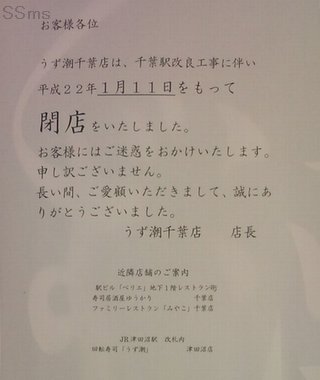 SSms
お客様各位
うず潮千葉店は、千葉駅改良工事に伴い
平成22年1月11日をもって
閉店をいたしました。
お客様にはご迷惑をおかけいたします。
申し訳ございません。
長い間、ご愛顧いただきまして、誠にあ
りがとうございました。
うず潮千葉店 店長
近隣店舗のご案内
駅ビル「ペリエ」地下1階レストラン街
寿司居酒屋ゆうかり 千葉店
ファミリーレストラン「みやこ」千葉店
JR津田沼駅 改札内
回転寿司「うず潮」 津田沼店